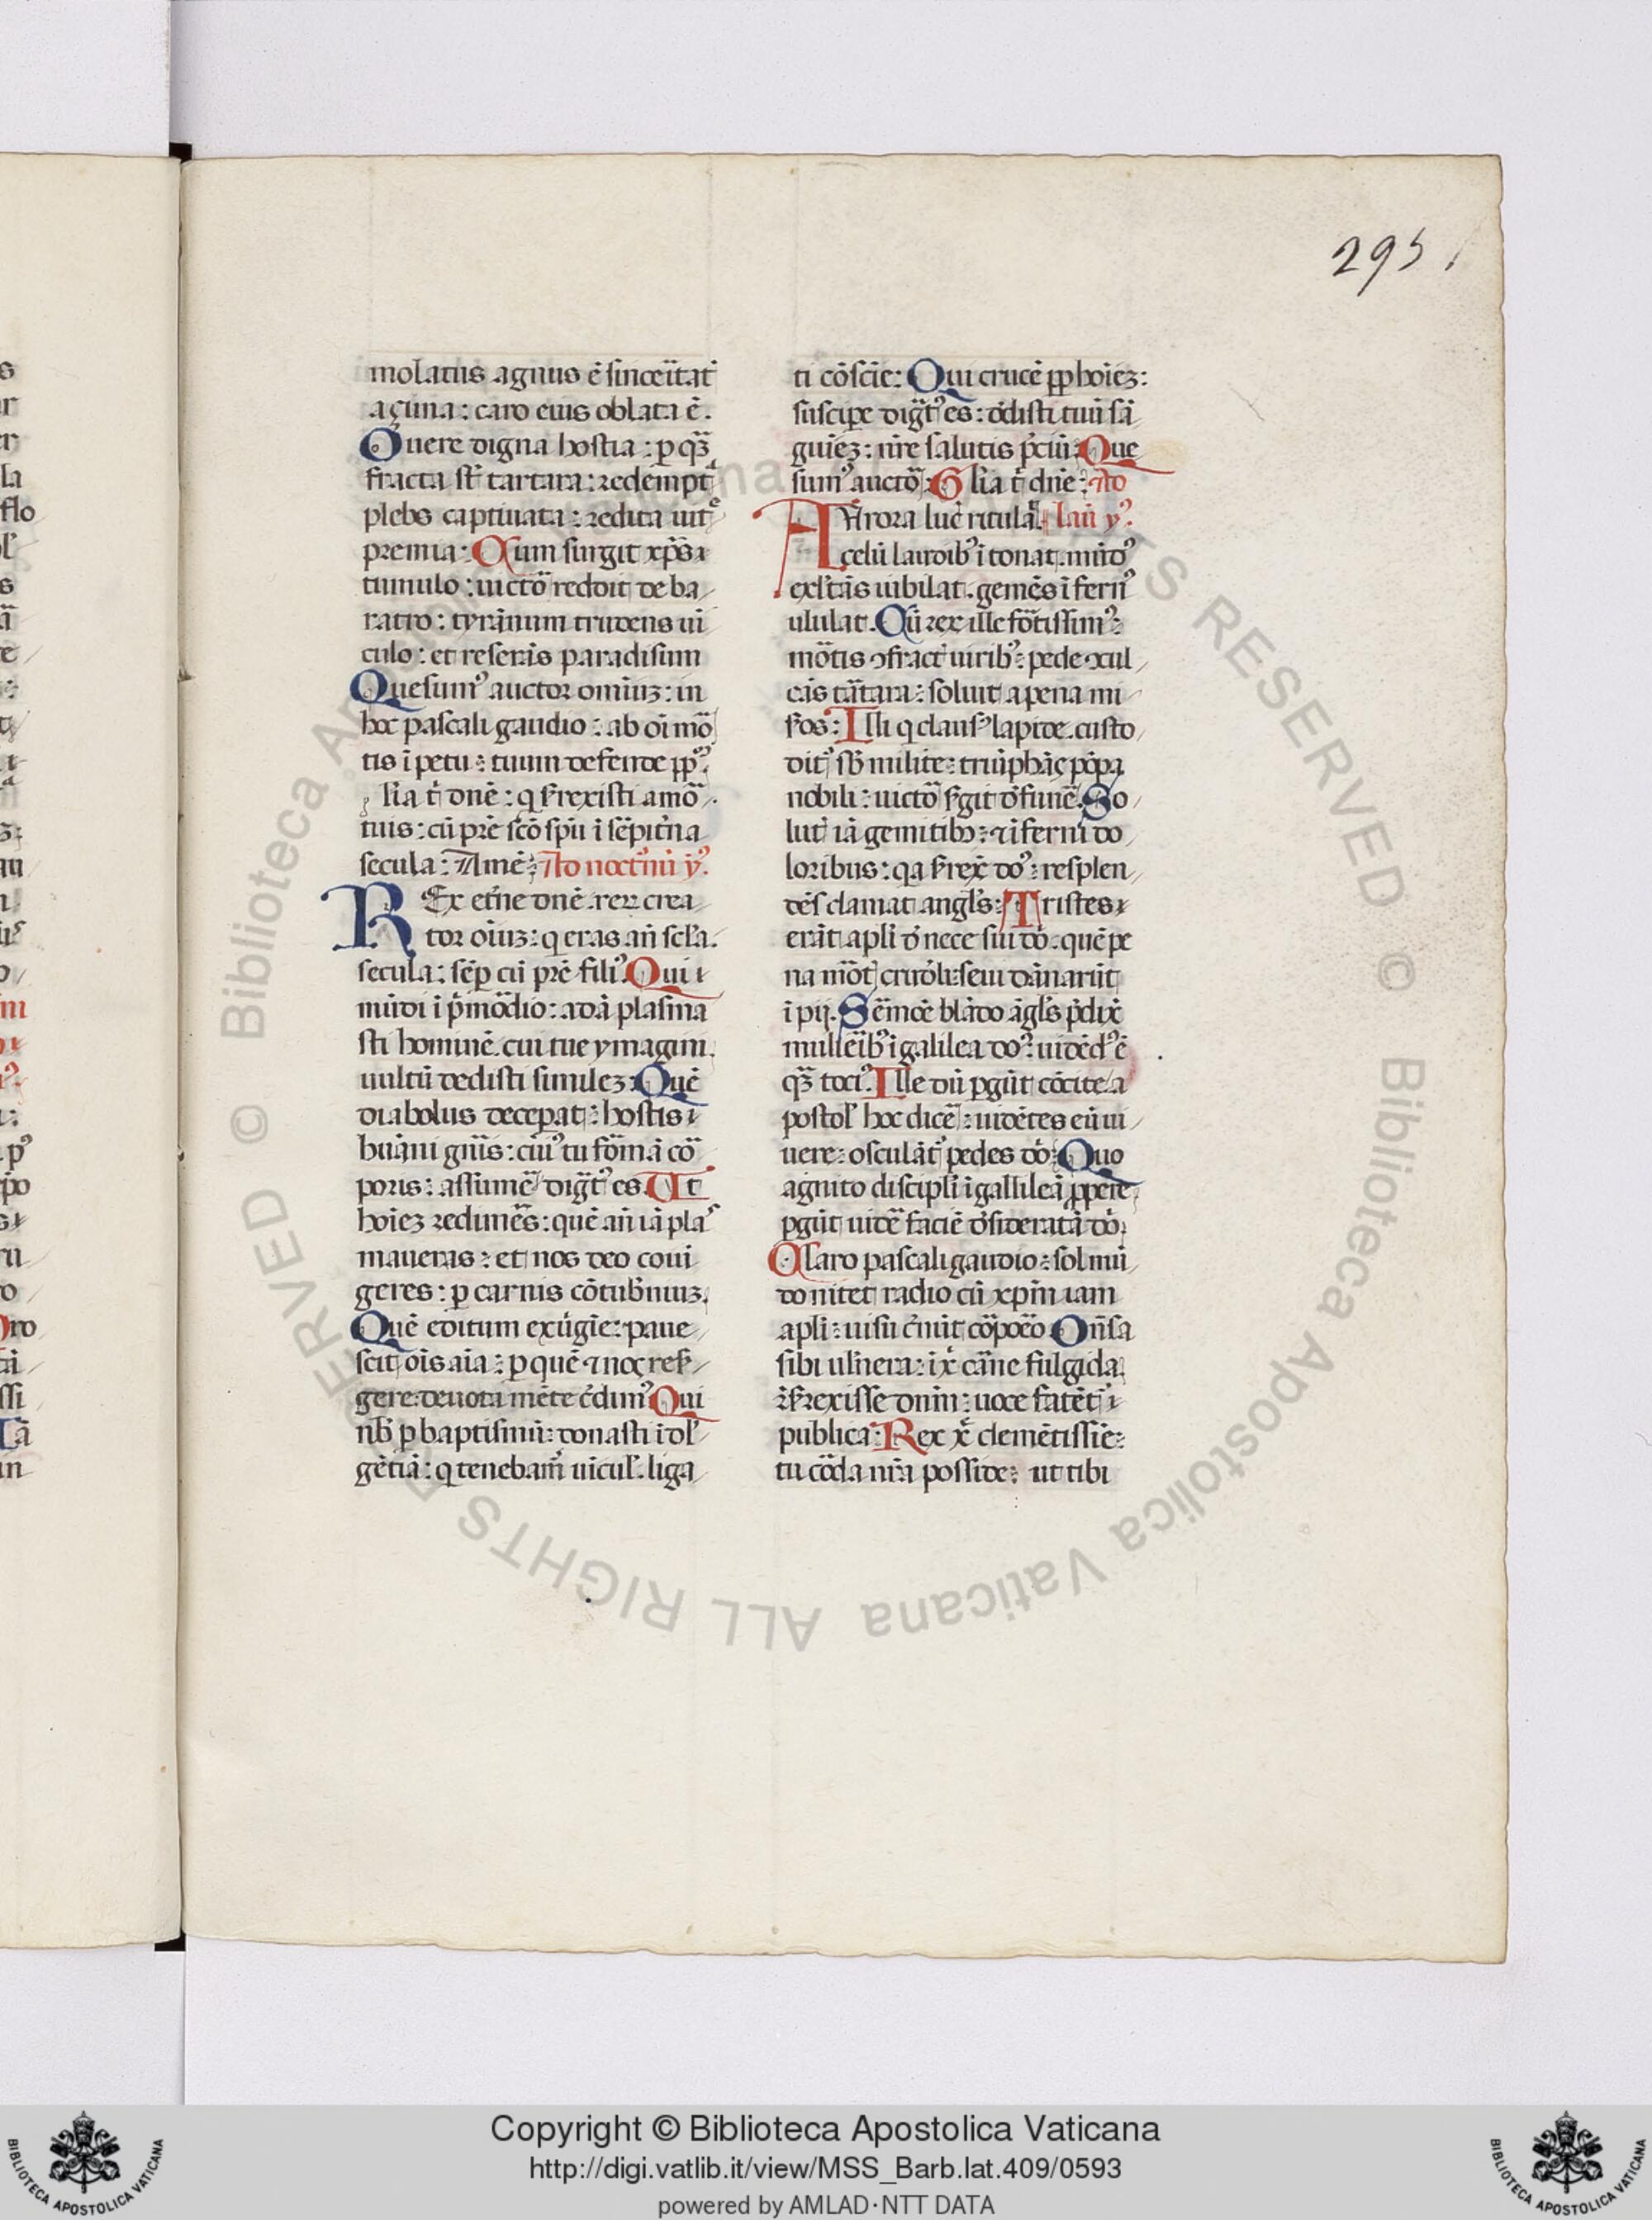 295
molatus agnus ē sinceritat̄
aҫima: caro eius oblata ē.
Ouere digna hostia: p quā
fracta st̄ tartara: redempta
plebs captiuata: redita uite
premia: Cum surgit xp̄s
tumulo: uictor reddit de ba
ratro: tyrānum trudens ui
culo: et reserās paradisum
Quesumꝰ auctor omīuȝ: in
hoc pascali gaudio: ab oī mor
tis ipetu: tuum defende pp̄lꝰ.
lr̄ia t̄ dnē: q srexisti a mor
tuis: cū prē scō spū ī sēpitna
secula: Amē: Ad noct'nū yꝰ.
REx et̄ne dnē. rerꝝ crea
tor oīuȝ: q eras an̄ scl'a.
secula: sēp cū prē filiꝰ. Qui
mūdi ī pmordio: adā plasma
sti hominē. cui tue ymagini
uultū dedisti simileȝ: Quē
diabolus deceperat: hostis
hūani gn̄is: cuiꝰ tu formā cor
poris: assumē digt̄ꝰ es. Ut
hoīeȝ redimēs: quē an̄ iā plas
maueras: et nos deo coni
geres: p carnis cōtub'niuȝ.
Quē editum ex ūgīe: paue
scit oīs aīa: p quē ⁊ nos resur
gere: deuota mēte c̄dimꝰ Qui
nb̄ p baptismū: donasti īdul
gētiā: q tenebam̄ uicul'. liga
ti cōscīe: Qui crucē pp hoīeȝ:
suscipe digt̄ꝰ es: dedisti tuū sā
guineȝ: nr̄e salutis p̄ciū: Que
sumꝰ auctor: Gl'ia t̄ dn̄e: Ad
laū yꝰ.
AUrora lucē rutulat.
celū laudibꝰ ītonat. mūdꝰ
exltās iubilat. gemēs īfernꝰ
ululat. Cū rex ille fortissimꝰ:
mortis ꝯfract' uiribꝰ: pede ꝯcul
cās tartara: soluit a pena mi
s'os: Illi q clausꝰ lapide. custo
ditꝰ sb̄ milite: triūphās pōpa
nobili: uictor s'git d' funē. So
lut' iā gemitib': ⁊ īferni do
loribus: qa srex' do': resplen
dēs clamat angls: Tristes
erāt apli d' nece sui dō. quē pe
na mōt̄ crudeli: seui dānarūt
ipij. Sermōe blādo āgls p̄dix̄
mulierībꝰ ī galilea doꝰ: uidēdꝰ ē
qz̄ tociꝰ Ille dū pgūt cōcite: a
postol' hoc dicē: uidētes eū ui
uere: osculāt̄ꝰ pedes dō: Quo
agnito discipli ī gallileā ppere
pgūt uidē faciē d'sideratā dō:
Claro pascali gaudio: sol mū
do nitet radio cū xpm̄ iam
apli: uisu c̄nūt corporeo On̄sa
sibi uln̄era: ī x̄ carne fulgida
r̄s'rexisse dnm̄: uoce fatēt̄ꝰ
publica: Rex x̄ clemētissīe:
tu corda nr̄a posside: ut tibi
Copyright © Biblioteca Apostolica Vaticana
http://digi.vatlib.it/view/MSS_Barb.lat.409/0593
powered by AMLAD·NTT DATA